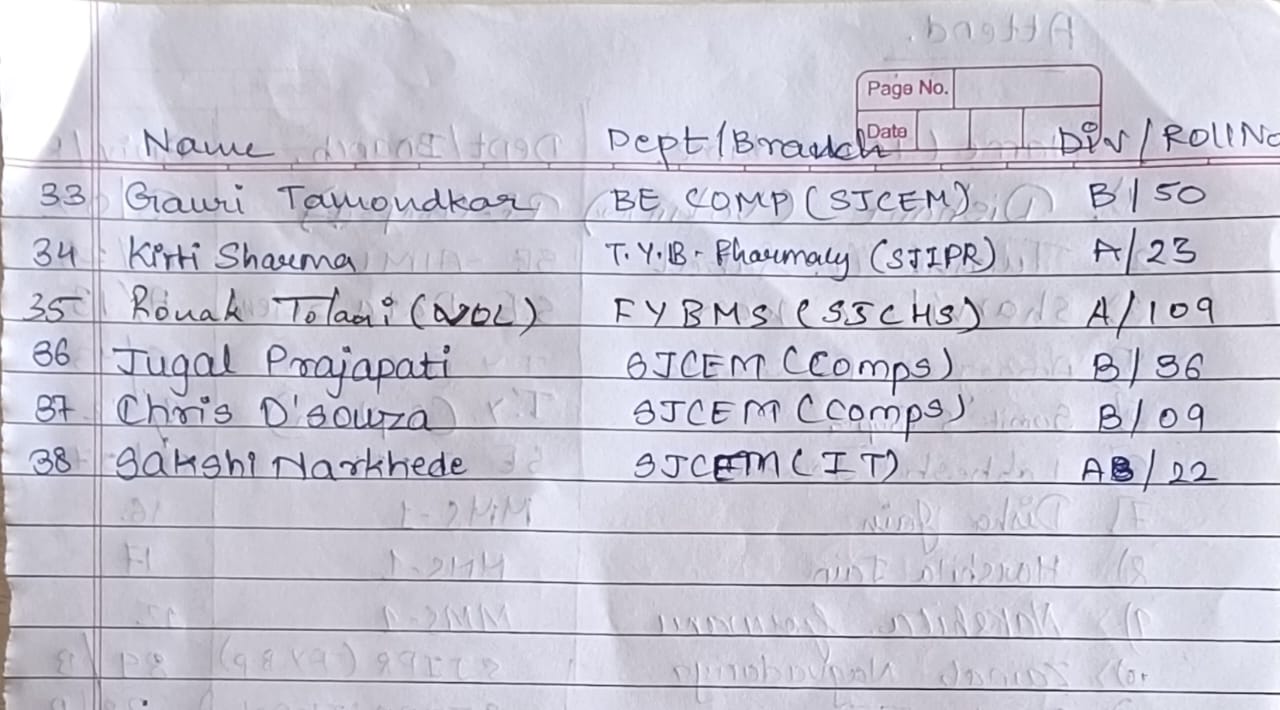 Page No.
Date
Name Dept/Branch Div/Roll No
33 Gauri Tamondkar BE COMP (SJCEM) B/50
34 Kirti Sharma T.Y.B. Pharmacy (SJIPR) A/23
35 Ronak Tolani (VOL) FYBMS (SJCHS) A/109
36 Jugal Prajapati SJCEM (Comps) B/36
37 Chris D'souza SJCEM (Comps) B/09
38 Sakshi Narkhede SJCEM (IT) AB/22